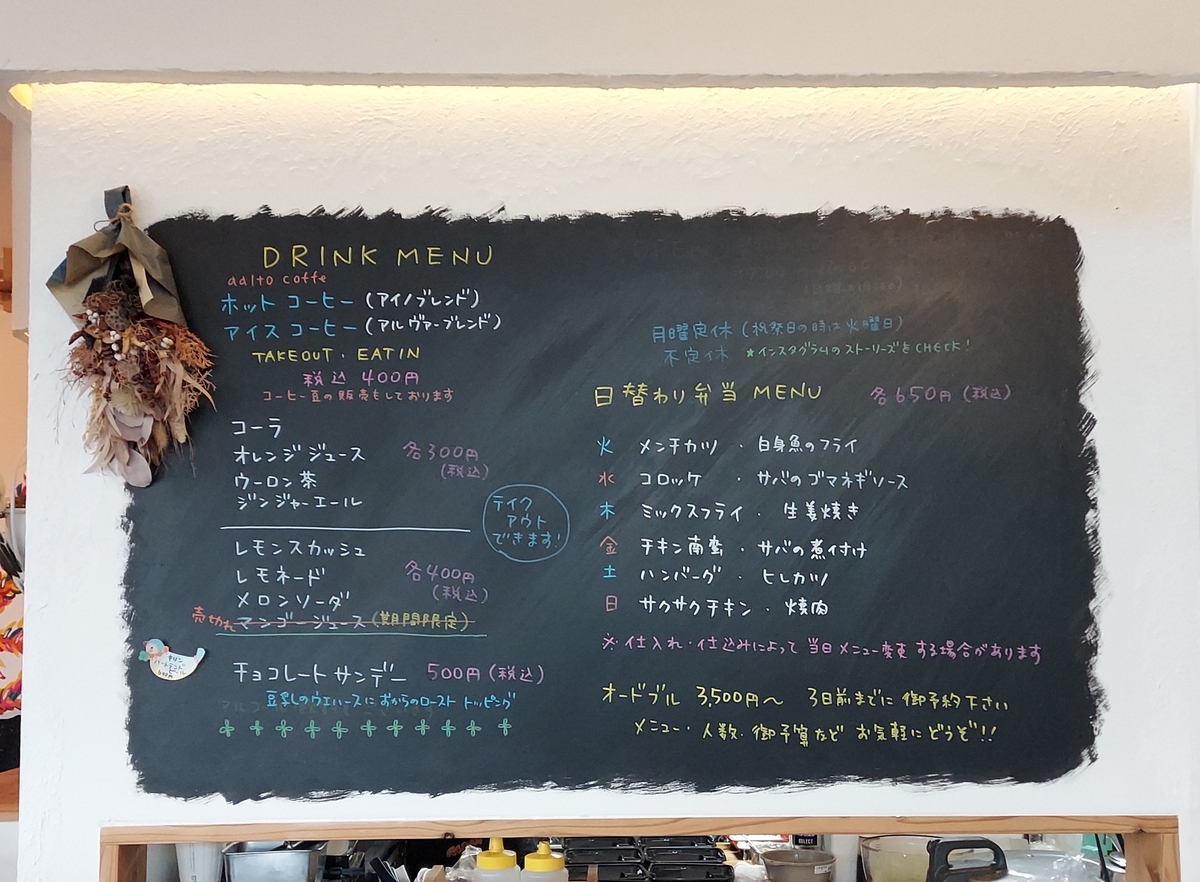 DRINK MENU
aalto coffe
ホットコーヒー(アイノブレンド)
アイスコーヒー(アルヴァーブレンド)
TAKEOUT・EATIN
税込 400円
コーヒー豆の販売もしております
コーラ
オレンジジュース 各300円
(税込)
ウーロン茶
ジンジャーエール
テイク
アウト
できます!
レモンスカッシュ
レモネード 各400円
(税込)
メロンソーダ
売切れ マンゴージュース(期間限定)
チョコレートサンデー 500円(税込)
豆乳しのウエハースにおからのロースト トッピング
月曜定休(祝祭日の時は火曜日)
不定休 ★インスタグラムのストーリーズをCHECK!
日替わり弁当 MENU 各650円(税込)
火 メンチカツ ・ 白身魚のフライ
水 コロッケ ・ サバのゴマネギソース
木 ミックスフライ ・ 生姜焼き
金 チキン南蛮 ・ サバの煮付け
土 ハンバーグ ・ ヒレカツ
日 サクサクチキン ・ 焼肉
※仕入れ・仕込みによって当日メニュー変更する場合があります
オードブル 3,500円〜 3日前までに御予約下さい
メニュー・人数・御予算などお気軽にどうぞ!!